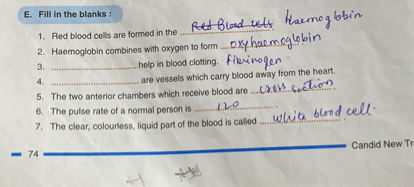 E. Fill in the blanks :
1. Red blood cells are formed in the Red Blood cells Haemoglobbin
2. Haemoglobin combines with oxygen to form oxyhaemoglobin
3. help in blood clotting. Fibrinogen
4. are vessels which carry blood away from the heart.
5. The two anterior chambers which receive blood are cross section.
6. The pulse rate of a normal person is 120
7. The clear, colourless, liquid part of the blood is called white blood cell.
74
Candid New Tr